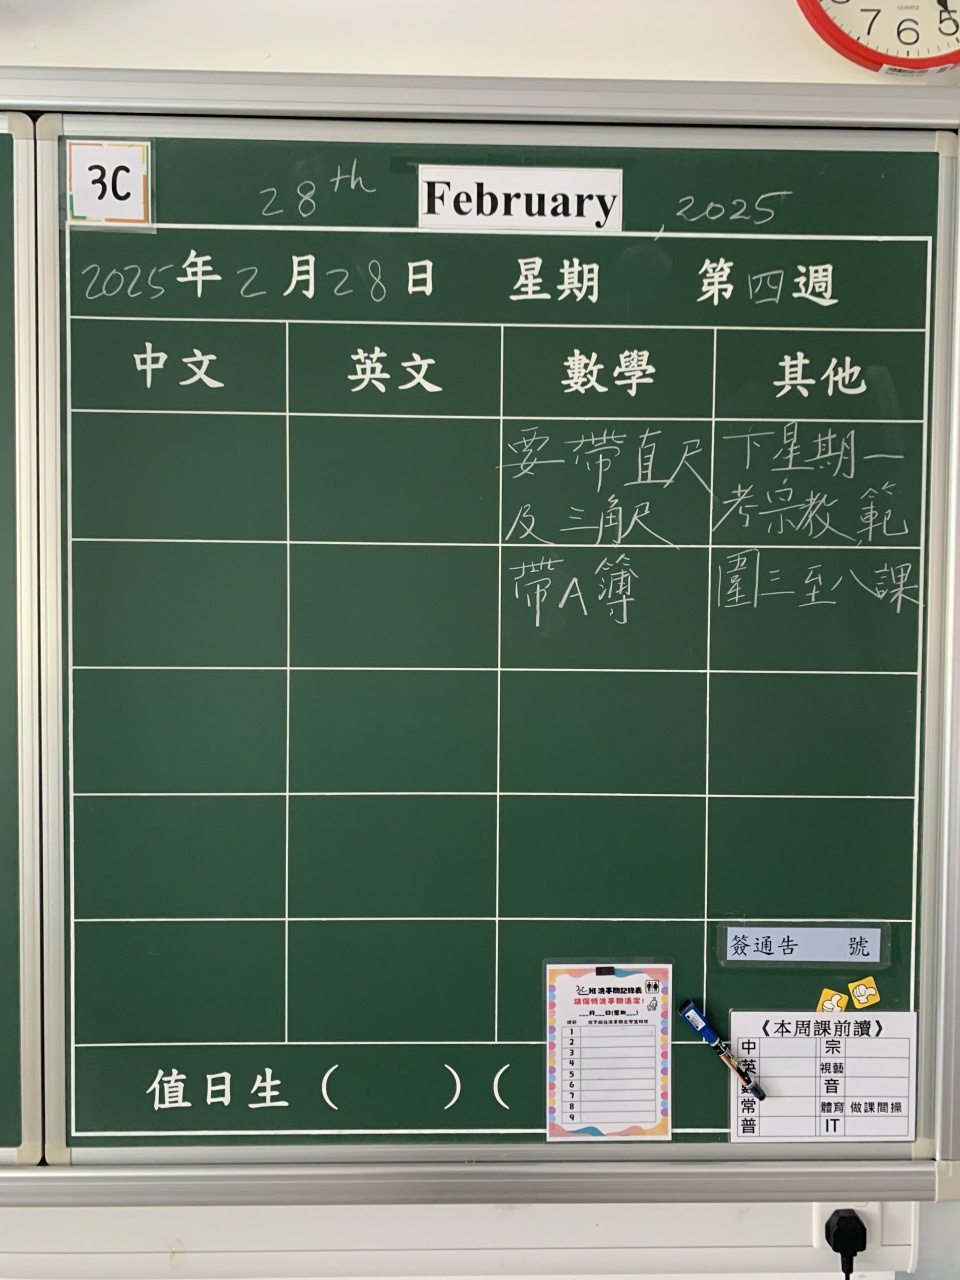 7 6 5
QUARTZ
3C
28th February, 2025
2025年2月28日 星期 第四週
中文 英文 數學 其他
要帶直尺
及三角尺
帶A簿
下星期一
考宗教,範
圍三至八課
簽通告 號
3C班洗手間記錄表
請保持洗手間清潔!
___月___日(星期___)
1
2
3
4
5
6
7
8
9
《本周課前讀》
中 宗
英 視藝
數 音
常 體育 做課間操
普 IT
值日生 ( ) (